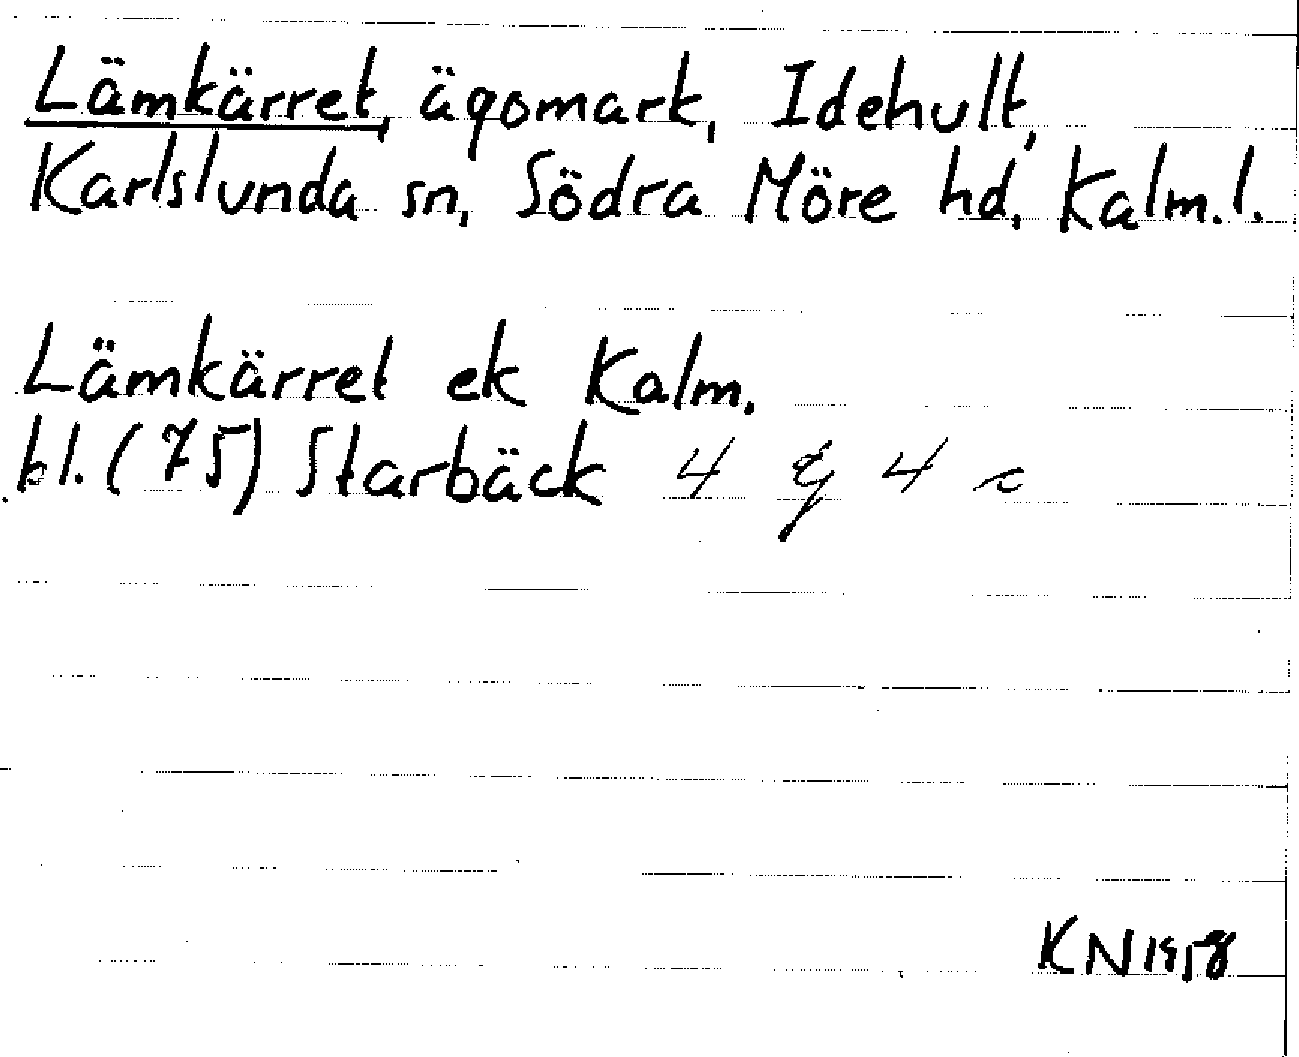 Lämkärret, ägomark, Idehult,
Karlslunda sn, Södra Möre hd, Kalm.l.
Lämkärret ek Kalm.
bl. (75) Starbäck 4 g 4 c
KN 1958